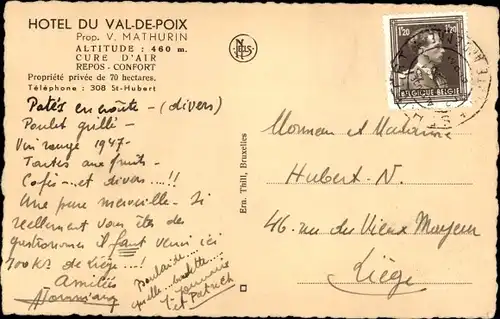 HOTEL DU VAL-DE-POIX
Prop. V. MATHURIN
ALTITUDE : 460 m.
CURE D'AIR
REPOS - CONFORT
Propriété privée de 70 hectares.
Téléphone : 308 St-Hubert
Patés en croûte - (divers)
Poulet grillé -
Vin rouge 1947 -
Tartes aux fruits -
Cafés - et divers...!!
Une pure merveille - Si
réellement vous êtes des
gastronomes il faut venir ici
100 ks de Liège...!
Amitiés
quelle
et Patrick
Ern. Thill, Bruxelles
NELS
1F20 1F20
BELGIQUE BELGIË
Monsieur et Madame
Hubert-N.
46. rue du Vieux Mayeur
Liège